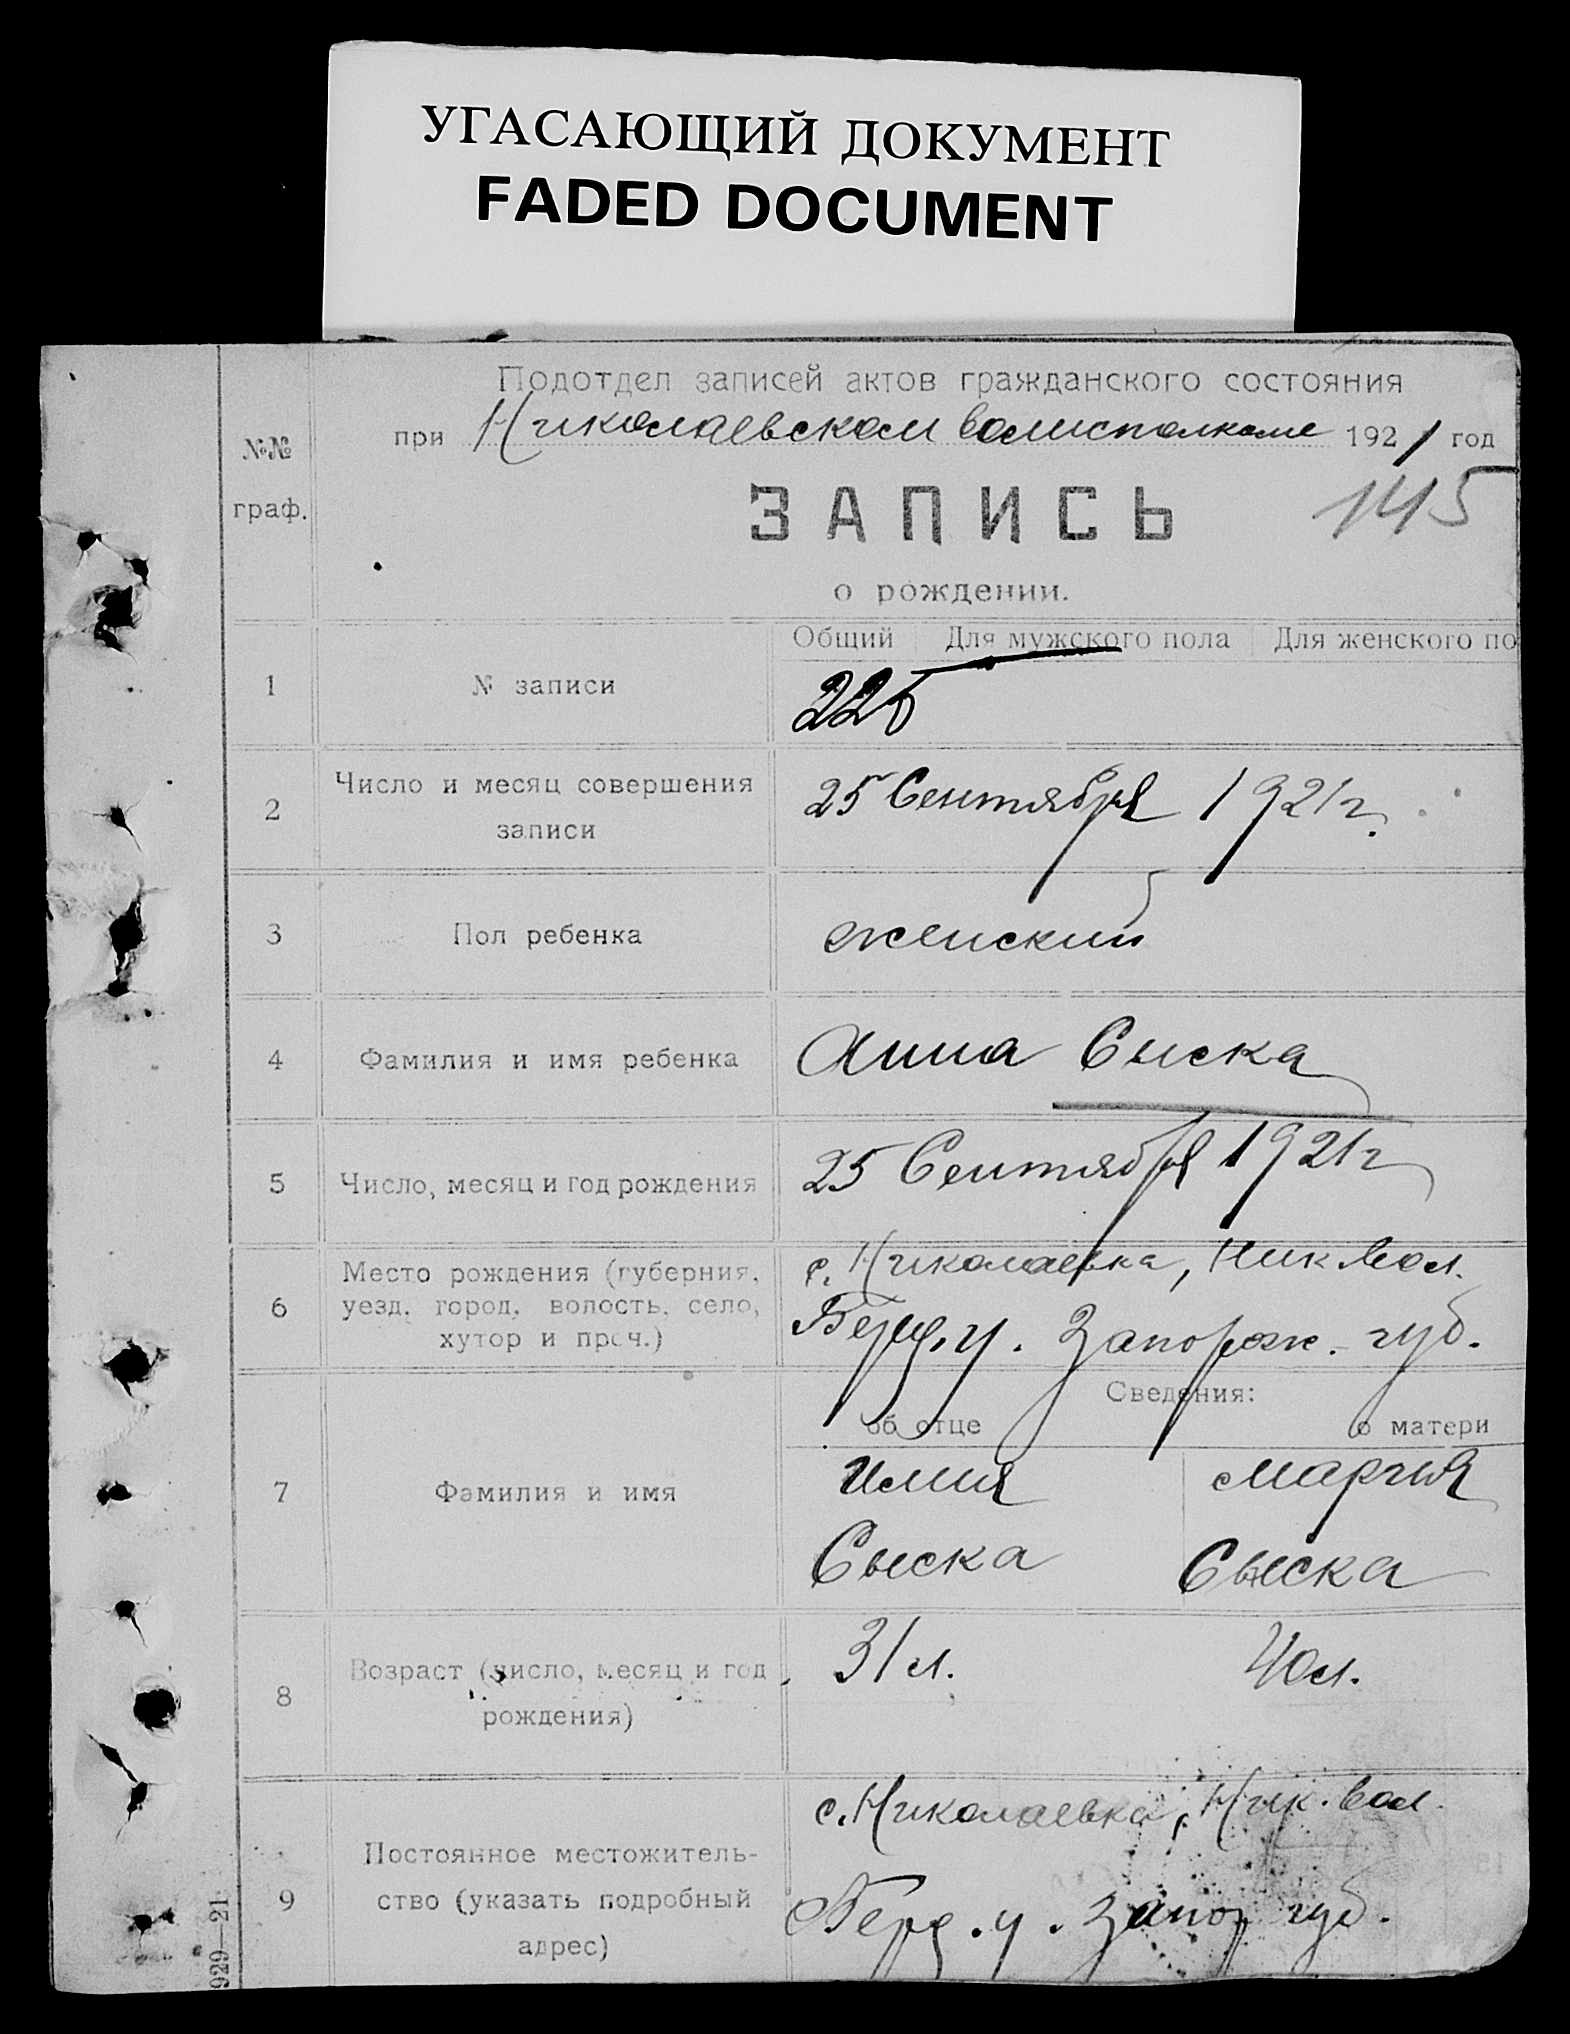 УГАСАЮЩИЙ ДОКУМЕНТ
FADED DOCUMENT
Подотдел записей актов гражданского состояния
при Николаевском волисполкоме 1921 год
№№
граф.
145
ЗАПИСЬ
о рождении.
Общий Для мужского пола Для женского по
1 № записи 225
2 Число и месяц совершения
записи
25 Сентября 1921 г.
3 Пол ребенка женский
4 Фамилия и имя ребенка Анна Сыска
5 Число, месяц и год рождения 25 Сентября 1921 г
6 Место рождения (губерния,
уезд, город, волость, село,
хутор и проч.)
с. Николаевка, Ник. Вол.
Берд. у. Запорож. губ.
Сведения:
об отце о матери
7 Фамилия и имя
Илия Мария
Сыска Сыска
8 Возраст (число, месяц и год
рождения)
31 л. 40 л.
9 Постоянное местожитель-
ство (указать подробный
адрес)
с. Николаевка, Ник. Вол.
Берд. у. Запор губ.
929—21